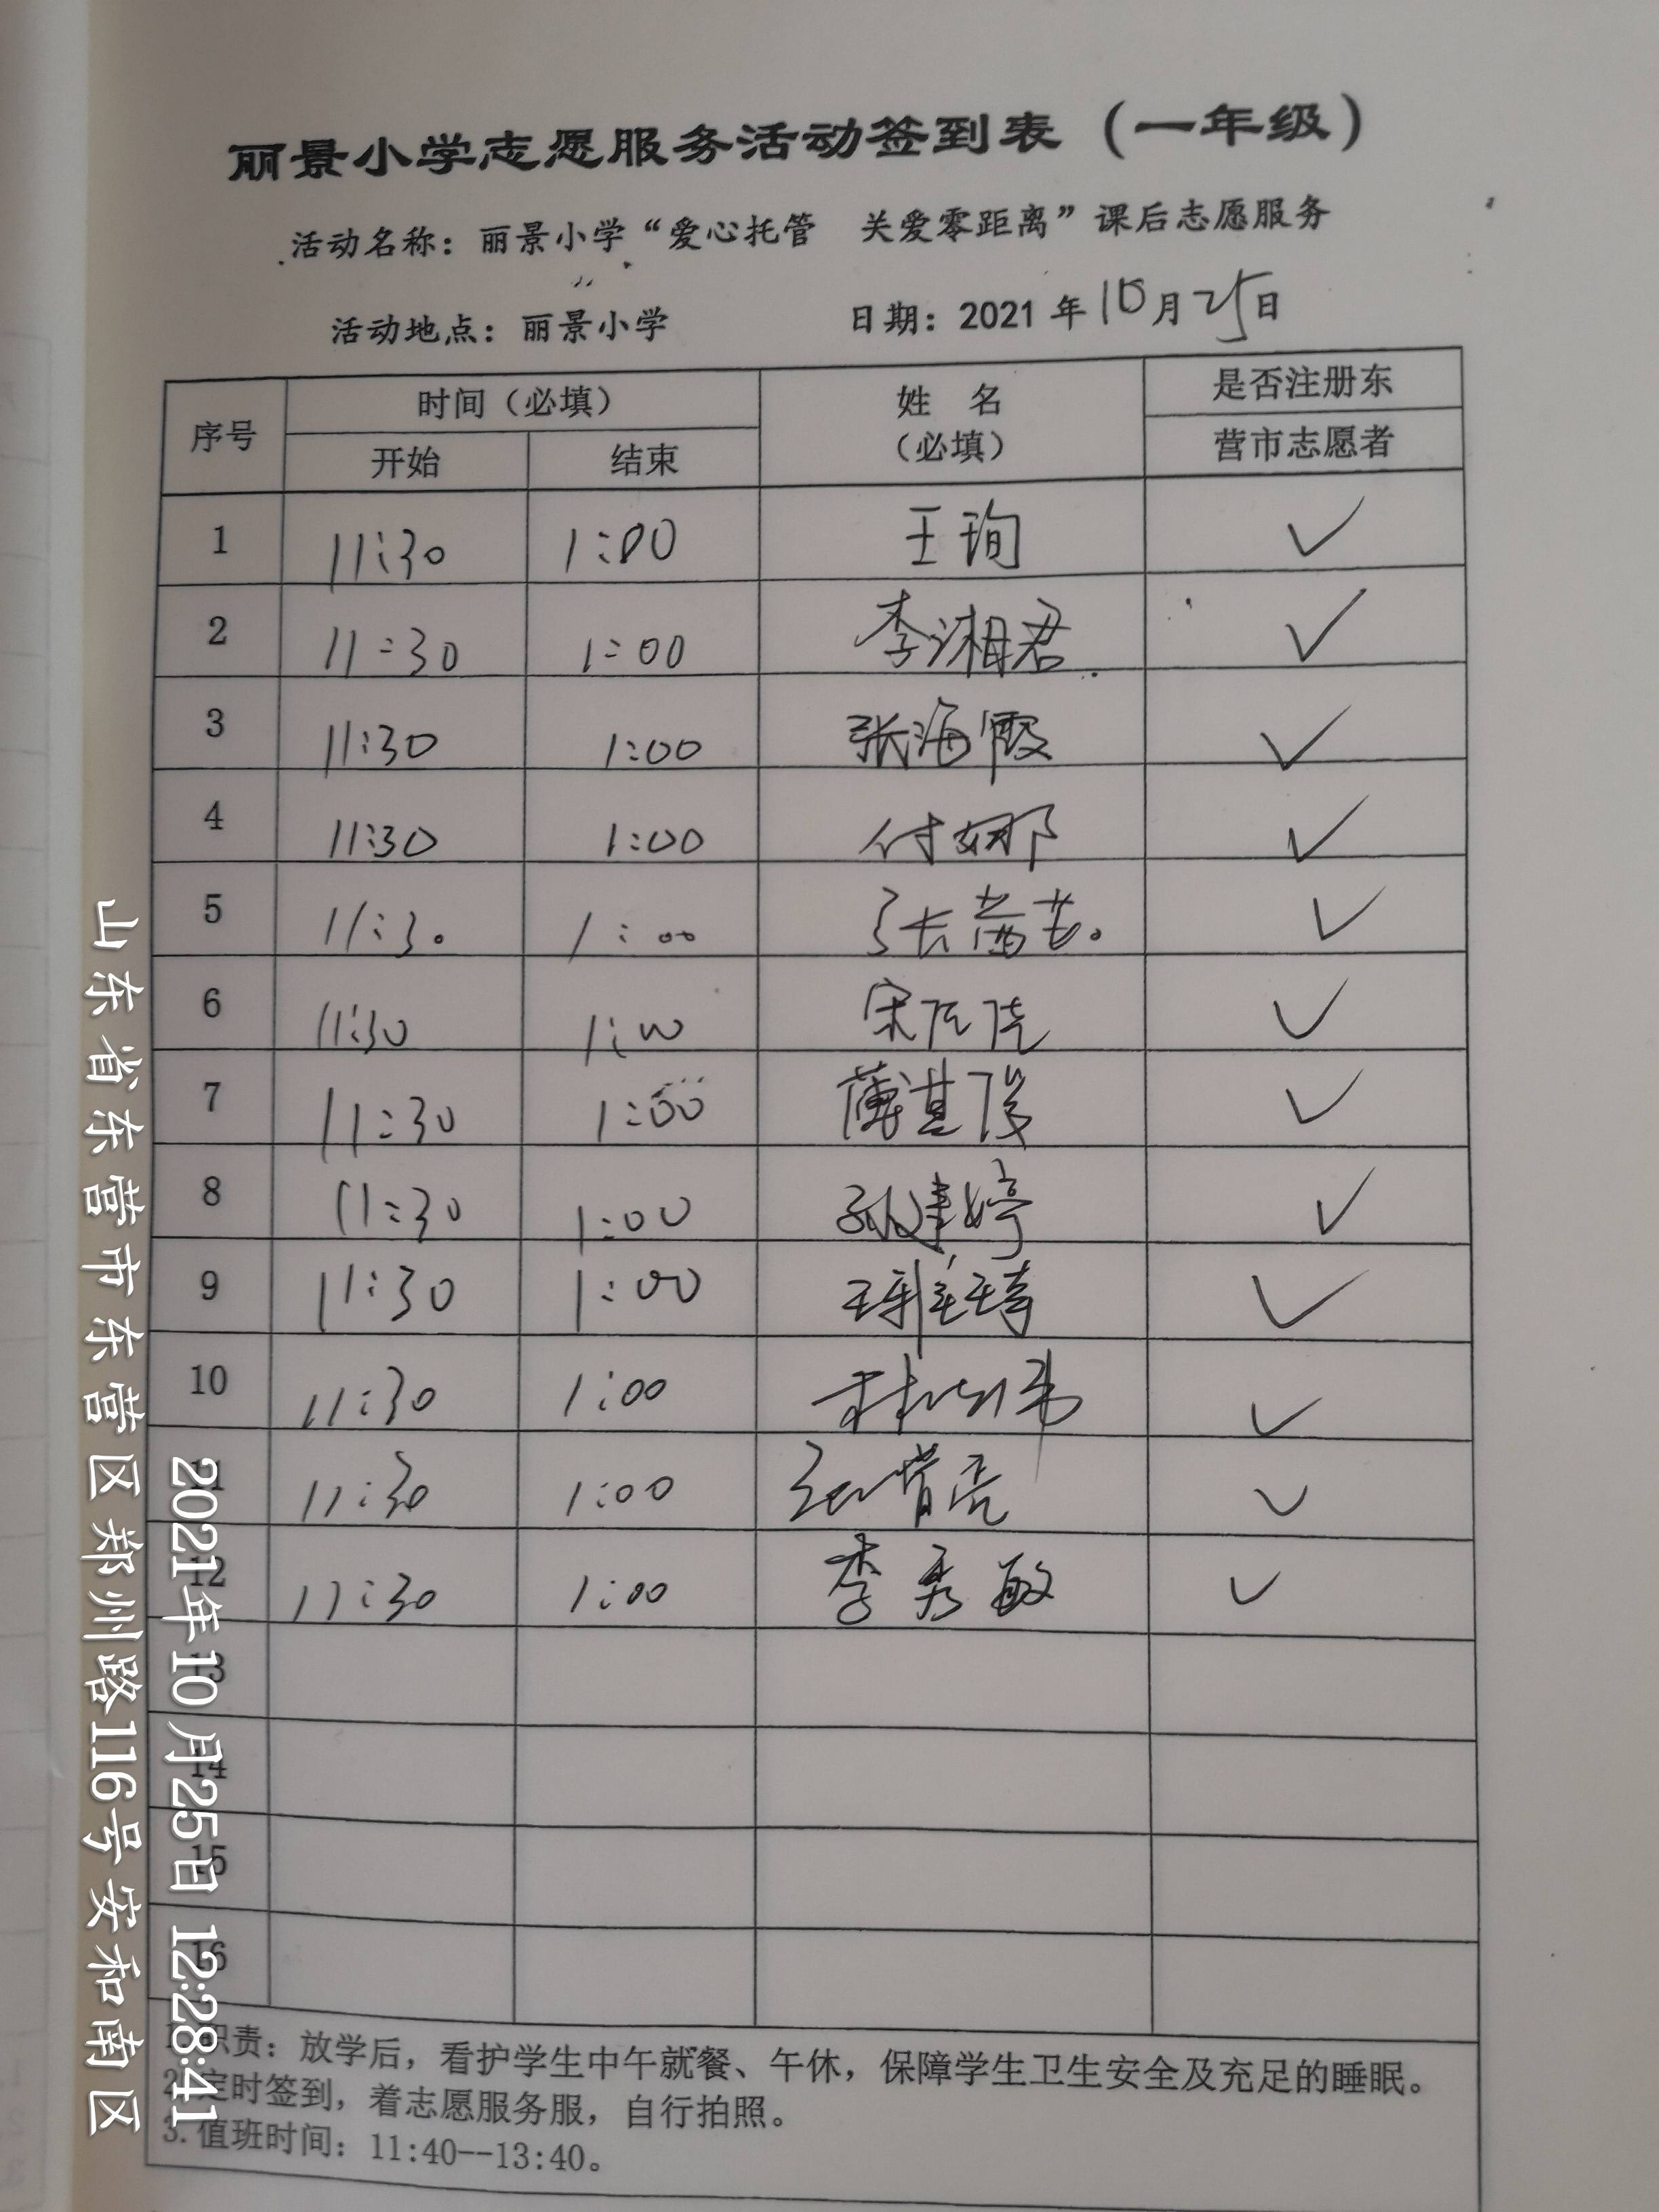 丽景小学志愿服务活动签到表（一年级）
活动名称：丽景小学“爱心托管 关爱零距离”课后志愿服务
活动地点：丽景小学 日期：2021年10月25日
序号 时间（必填） 姓 名 是否注册东
开始 结束 （必填） 营市志愿者
1 11:30 1:00 王珣 ✓
2 11:30 1:00 李湘君 ✓
3 11:30 1:00 张海霞 ✓
4 11:30 1:00 付娜 ✓
5 11:30 1:00 张茜芸 ✓
6 11:30 1:00 宋 ✓
7 11:30 1:00 ✓
8 11:30 1:00 孙建婷 ✓
9 11:30 1:00 ✓
10 11:30 1:00 ✓
11 11:30 1:00 ✓
12 11:30 1:00 李秀敏 ✓
13
14
15
16
1.职责：放学后，看护学生中午就餐、午休，保障学生卫生安全及充足的睡眠。
2.定时签到，着志愿服务服，自行拍照。
3.值班时间：11:40--13:40。
2021年10月25日 12:28:41
山东省东营市东营区郑州路116号安和南区